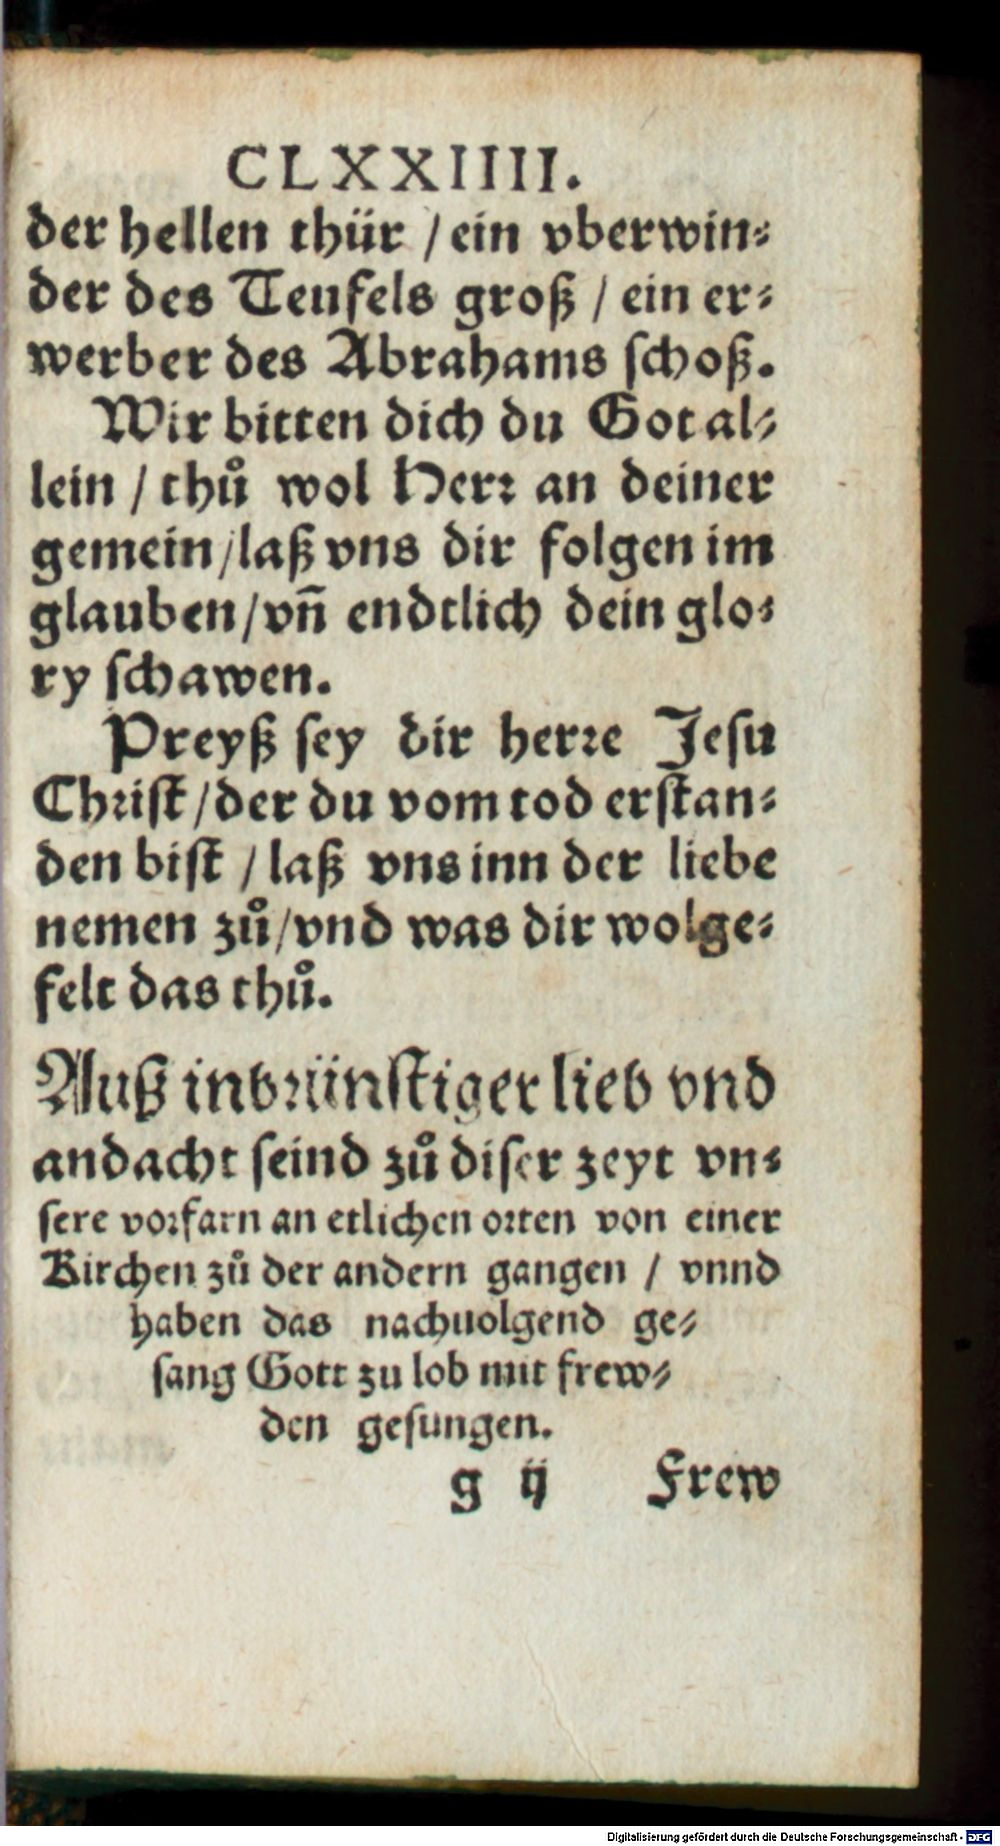 CLXXIIII.
der hellen thür / ein vberwin⸗
der des Teufels groß / ein er⸗
werber des Abrahams schoß.
Wir bitten dich du Got al⸗
lein / thů wol Herr an deiner
gemein / laß vns dir folgen im
glauben / vn̄ endtlich dein glo⸗
ry schawen.
Preyß sey dir herre Jesu
Christ / der du vom tod erstan⸗
den bist / laß vns inn der liebe
nemen zů / vnd was dir wolge⸗
felt das thů.
Auß inbrünstiger lieb vnd
andacht seind zů diser zeyt vn⸗
sere vorfarn an etlichen orten von einer
Kirchen zů der andern gangen / vnnd
haben das nachuolgend ge⸗
sang Gott zu lob mit frew⸗
den gesungen.
g ij Frew
Digitalisierung gefördert durch die Deutsche Forschungsgemeinschaft - DFG